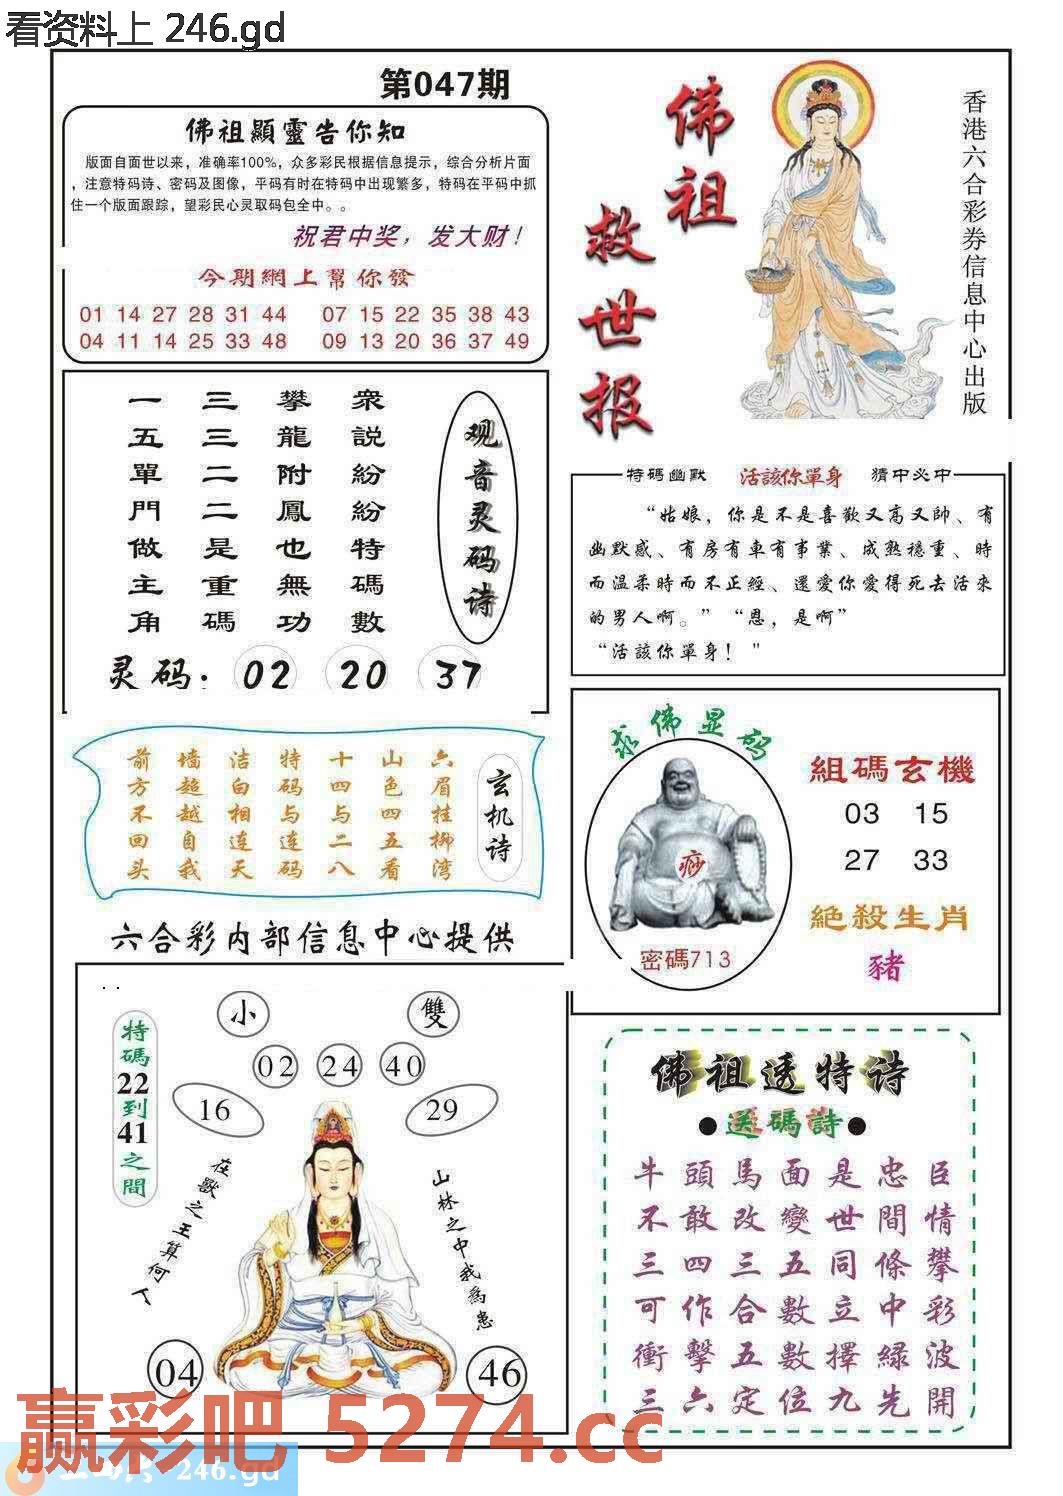 看资料上 246.gd
第047期
佛祖顯靈告你知
版面自面世以来，准确率100%，众多彩民根据信息提示，综合分析片面
，注意特码诗、密码及图像，平码有时在特码中出现繁多，特码在平码中抓
住一个版面跟踪，望彩民心灵取码包全中。。
祝君中奖，发大财！
今期網上幫你發
01 14 27 28 31 44 07 15 22 35 38 43
04 11 14 25 33 48 09 13 20 36 37 49
佛祖
救世报
香港六合彩券信息中心出版
观音灵码诗
衆説紛紛特碼數
攀龍附鳳也無功
三三二二是重碼
一五單門做主角
灵码：02 20 37
特碼幽默 活該你單身 猜中必中
“姑娘，你是不是喜歡又高又帥、有
幽默感、有房有車有事業、成熟穩重、時
而温柔時而不正經、還愛你愛得死去活來
的男人啊。” “恩，是啊”
“活該你單身！"
玄机诗
六眉挂柳湾
山色四五看
十四与二八
特码与连码
洁白相连天
墙超越自我
前方不回头
求佛显码
痧
密碼713
組碼玄機
03 15
27 33
絶殺生肖
豬
六合彩内部信息中心提供
小 雙
02 24 40
16 29
特碼22到41之間
在獸之王算何人
山林之中我為患
04 46
佛祖透特诗
●送碼詩●
牛頭馬面是忠臣
不敢改變世間情
三四三五同條攀
可作合數立中彩
衝擊五數擇緑波
三六定位九先開
赢彩吧 5274.cc
246.gd